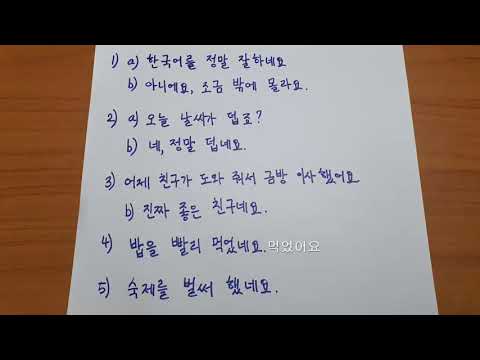 1) a) 한국어를 정말 잘하네요
b) 아니에요, 조금 밖에 몰라요.
2) a) 오늘 날씨가 덥죠?
b) 네, 정말 덥네요.
3) 어제 친구가 도와 줘서 금방 이사했어요
b) 진짜 좋은 친구네요.
4) 밥을 빨리 먹었네요. 먹었어요
5) 숙제를 벌써 했네요.